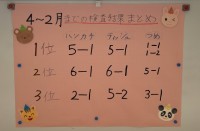 4〜2月までの検査結果まとめ
ハンカチ ティッシュ つめ
1位 5−1 5−1 1−1 1−2
2位 6−1 6−1 5−1
3位 2−1 5−2 3−1